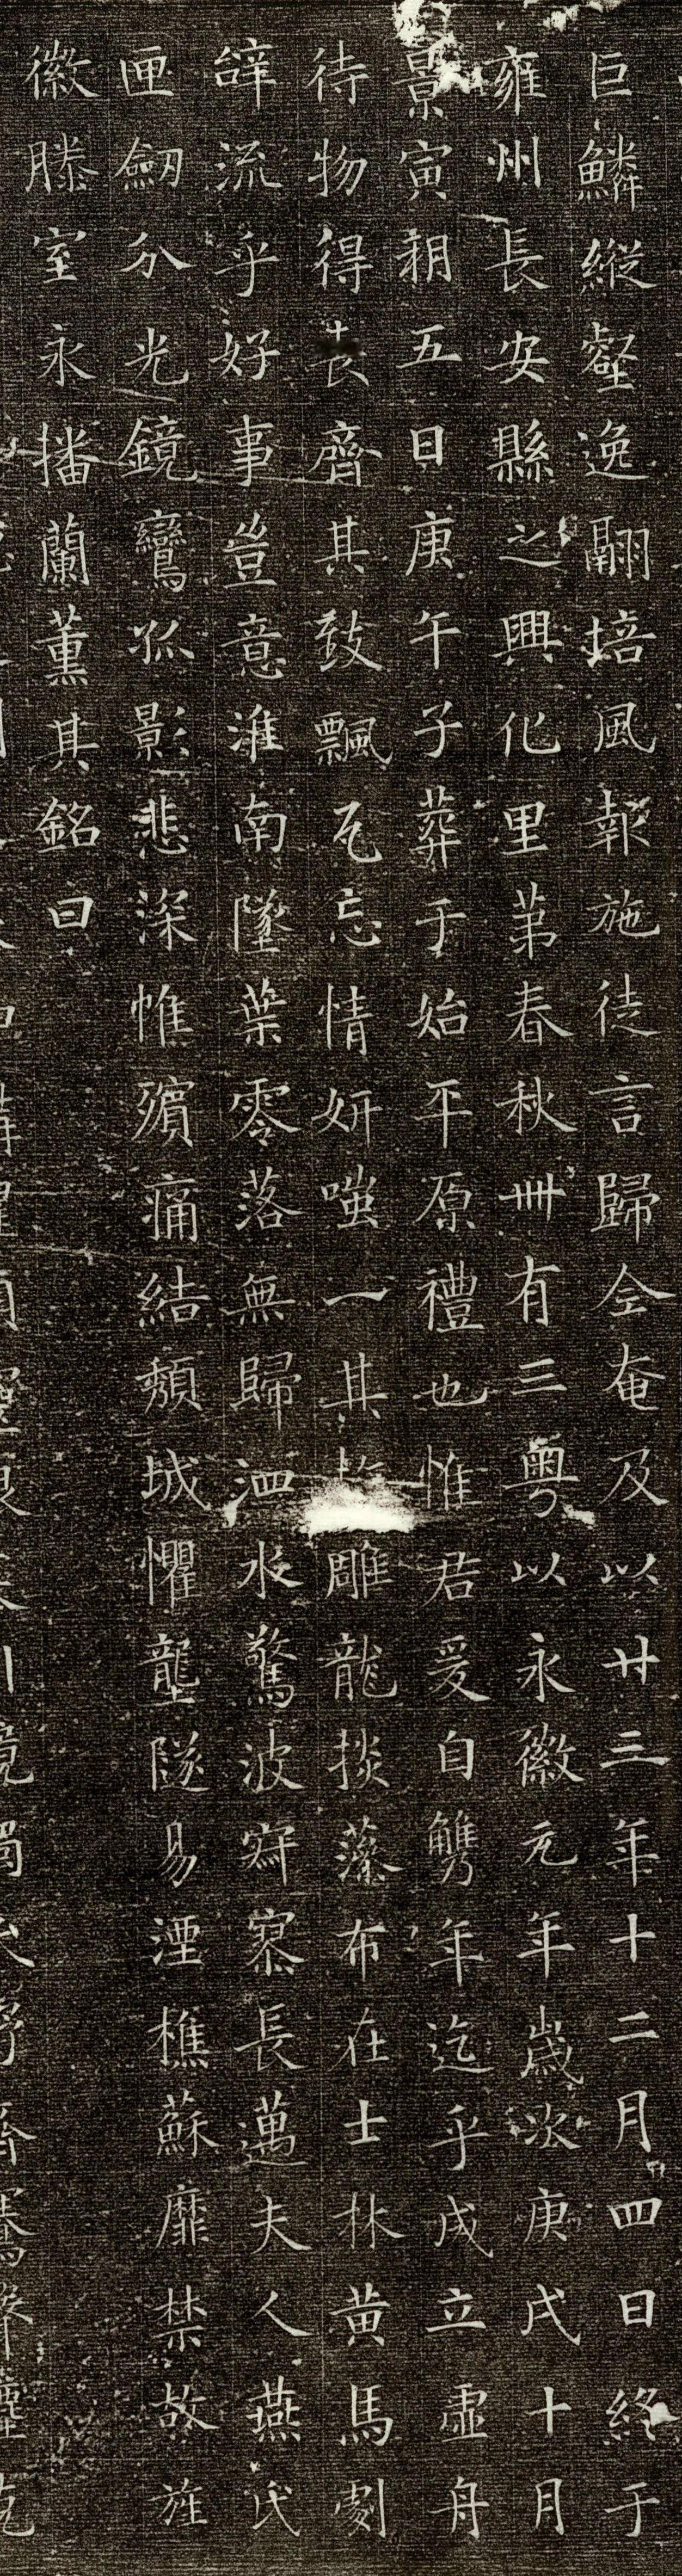 巨鱗縱壑逸翮培風報施徒言歸全奄及以廿三年十二月四日終于
雍州長安縣之興化里第春秋卌有三粵以永徽元年歲次庚戌十月
景寅朔五日庚午子葬于始平原禮也惟君爰自觿年迄乎成立虛舟
待物得喪齊其致飄瓦忘情妍嗤一其雕龍掞藻布在士林黃馬劇
辝流乎好事豈意淮南墜葉零落無歸泗水驚波寂寥長邁夫人燕氏
匣劒分光鏡鸞孤影悲深帷殯痛結頹城懼壟隧易湮樵蘇靡禁敬旌
徽滕室永播蘭薰其銘曰